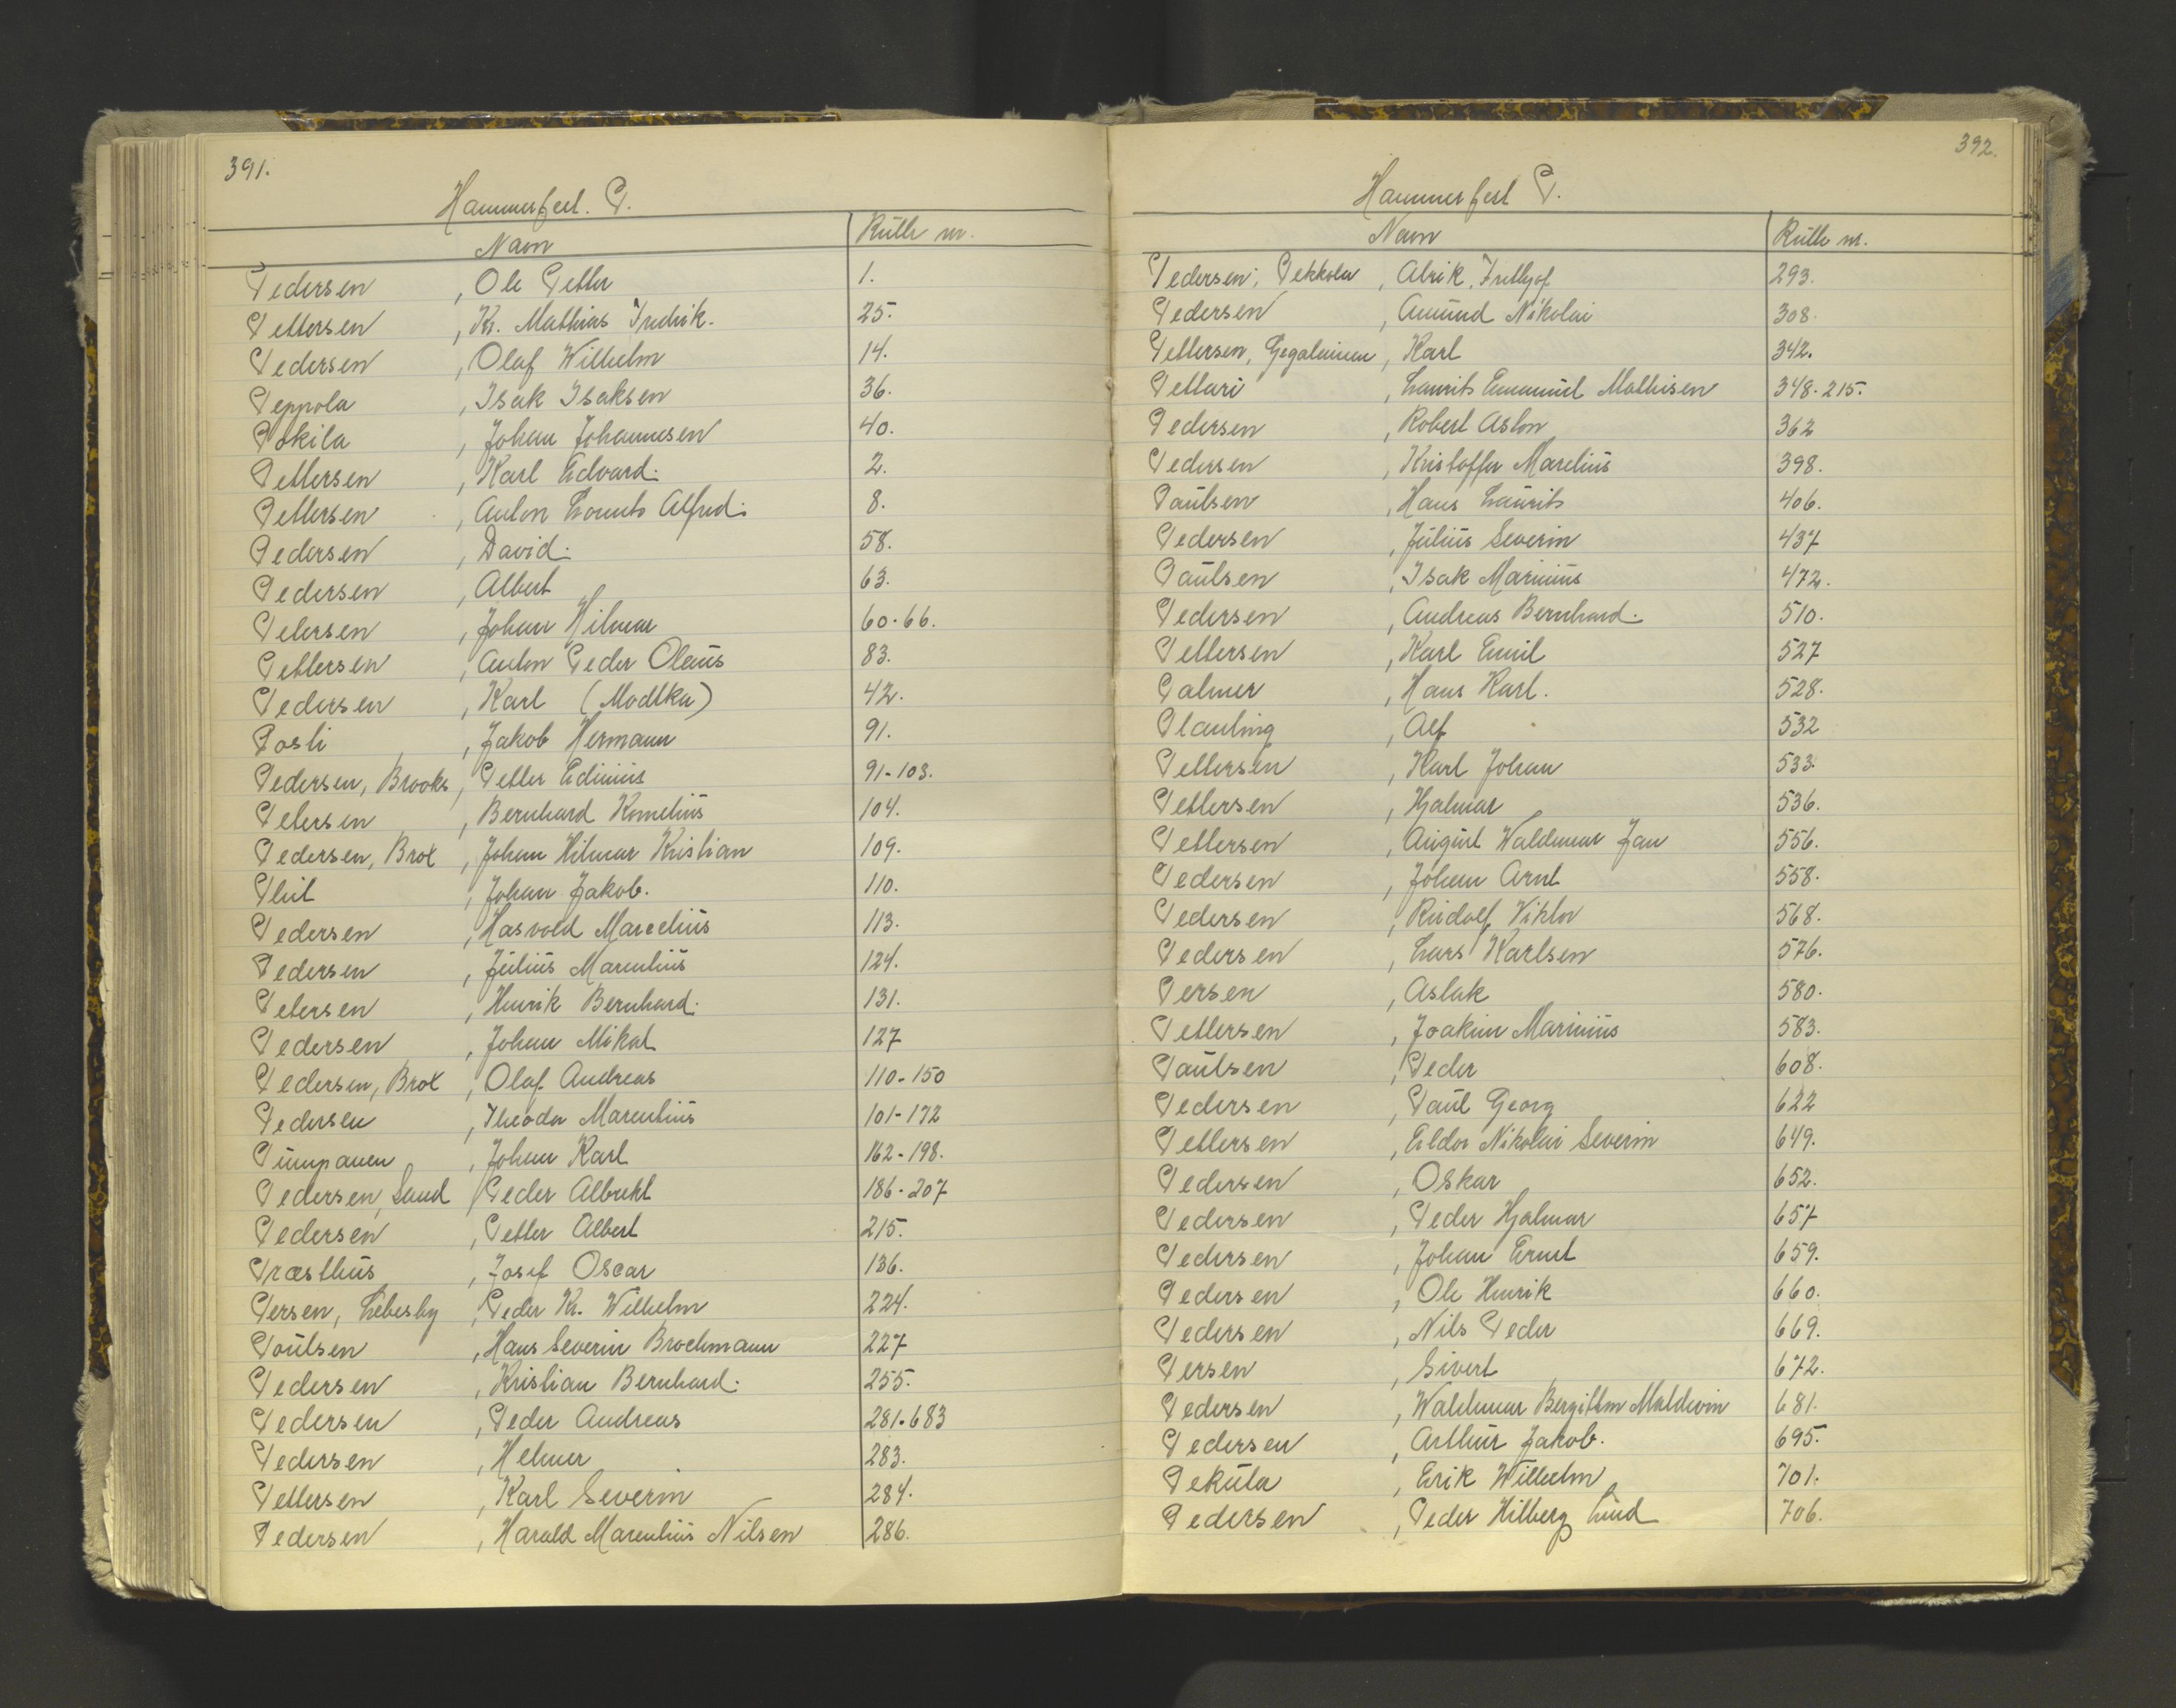 391.
Hammerfest. P.
Navn Rulle nr.
Pedersen, Ole Petter 1.
Pettersen, Kr. Mathias Fredrik. 25.
Pedersen, Olaf Wilhelm 14.
Peppola, Isak Isaksen 36.
Pokila, Johan Johannesen 40.
Pettersen, Karl Edvard. 2.
Pettersen, Anton Lorents Alfred. 8.
Pedersen, David. 58.
Pedersen, Albert 63.
Petersen, Johan Hilmar 60-66.
Pettersen, Anton Peder Olaus 83.
Pedersen, Karl (Modtka) 42.
Posti, Jakob Hermann 91.
Pedersen, Brooks, Petter Edinius 91-103.
Petersen, Bernhard Kornelius 104.
Pedersen, Brox, Johan Hilmar Kristian 109.
Johan Jakob. 110.
Pedersen, Hasvold Marcelius 113.
Pedersen, Julius Marentius 124.
Petersen, Henrik Bernhard. 131.
Pedersen, Johan Mikal 127
Pedersen, Brox, Olaf Andreas 110-150
Pedersen, Theodor Marentius 101-172
Pumpanen, Johan Karl 162-198.
Pedersen, Sund, Peder Albrekt 186-207
Pedersen, Petter Albert 215.
Præsthus, Josef Oscar 136.
Persen, Lebesby, Peder Kr. Wilhelm 224.
Poulsen, Hans Severin Brochmann 227
Pedersen, Kristian Bernhard. 255.
Pedersen, Peder Andreas 281-683
Pedersen, Helmer 283.
Pettersen, Karl Severin 284.
Pedersen, Harald Marentius Nilsen 286.
392.
Hammerfest P.
Navn Rulle nr.
Pedersen, Pekkola, Alrik, Frithjof 293.
Pedersen, Amund Nikolai 308.
Pettersen, Karl 342.
Pettari, Laurits Emanuel Mathisen 348-215.
Pedersen, Robert Aston 362
Pedersen, Kristoffer Marelius 398.
Paulsen, Hans Laurits 406.
Pedersen, Julius Severin 437
Paulsen, Isak Marinius 472.
Pedersen, Andreas Bernhard. 510.
Pettersen, Karl Emil 527
Palmer, Hans Karl. 528.
Plauting, Alf 532
Pettersen, Karl Johan 533.
Pettersen, Hjalmar 536.
Pettersen, August Waldemar Jan 556.
Pedersen, Johan Arnt 558.
Pedersen, Rudolf Viktor 568.
Pedersen, Lars Karlsen 576.
Persen, Aslak 580.
Pettersen, Joakim Marinius 583.
Paulsen, Peder 608.
Pedersen, Paul Georg 622
Pettersen, Eldor Nikolai Severin 649.
Pedersen, Oskar 652.
Pedersen, Peder Hjalmar 657
Pedersen, Johan Ernst 659.
Pedersen, Ole Henrik 660.
Pedersen, Nils Peder 669.
Persen, Sivert 672.
Pedersen, Waldemar Maldwin 681.
Pedersen, Arthur Jakob. 695.
Pekula, Erik Wilhelm 701.
Pedersen, Peder Hilberg Lund 706.